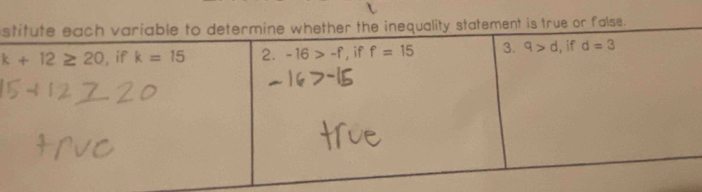 stitute each variable to determine whether the inequality statement is true or false.
k + 12 ≥ 20, if k = 15
15+12 ≥ 20
true
2. -16 > -f, if f = 15
-16>-15
true
3. 9 > d, if d = 3